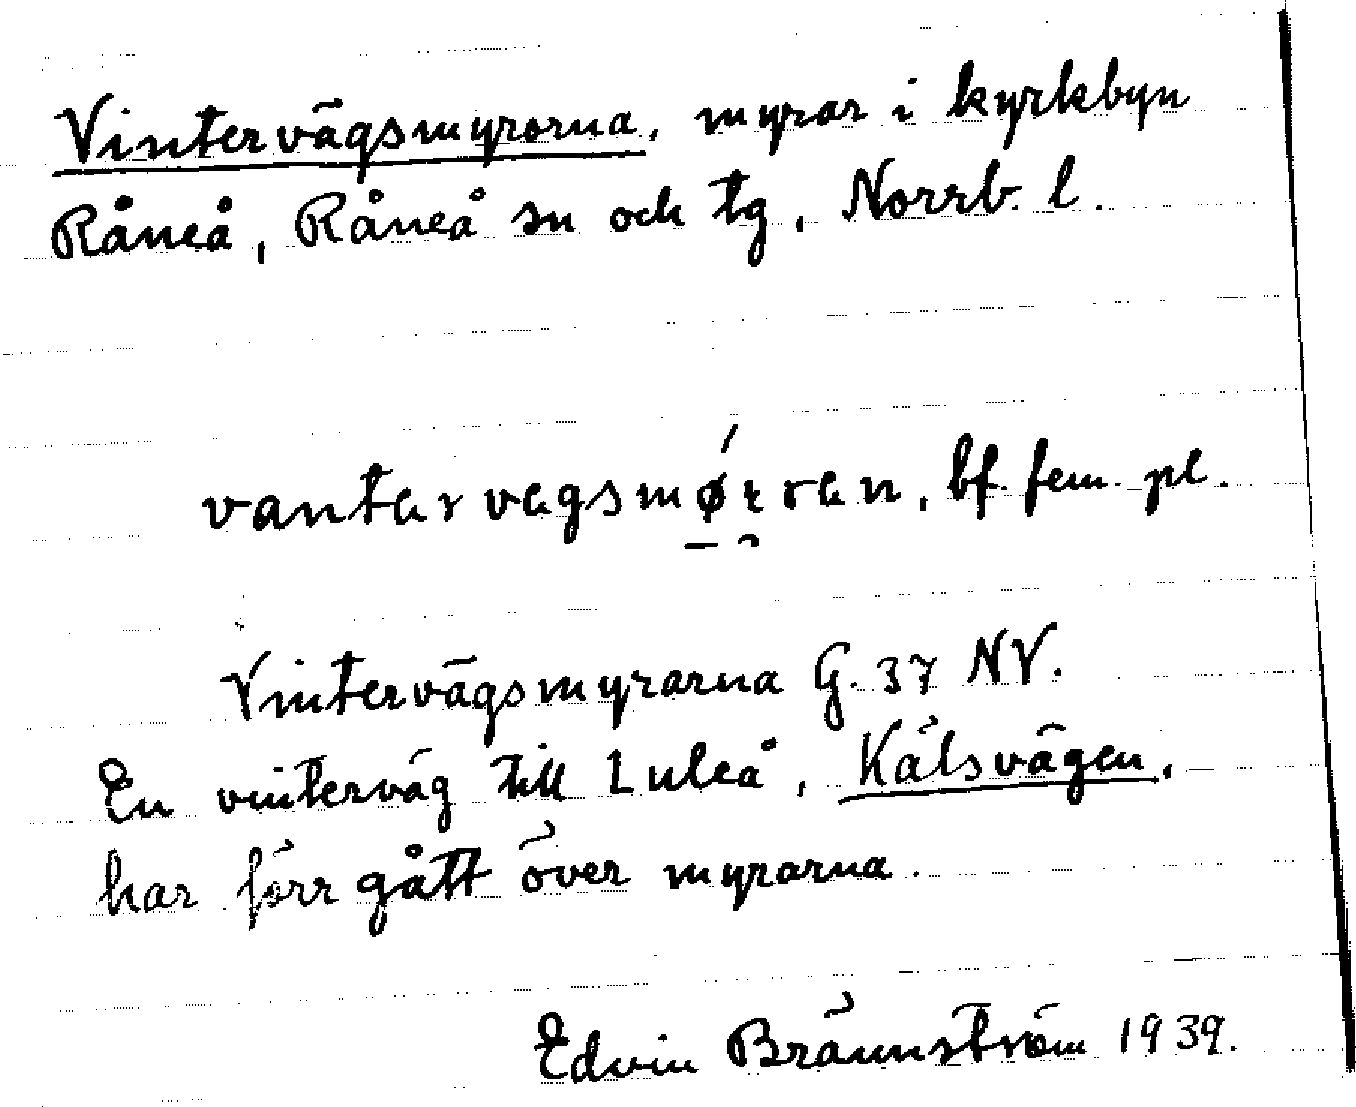 Vintervägsmyrorna, myrar i kyrkbyn
Råneå, Råneå sn och tg, Norrb. l.
vantarvegsmǿrran, bf. fem. pl.
Vintervägsmyrarna G. 37 NV.
En vinterväg till Luleå, Kälsvägen,
har förr gått över myrarna.
Edvin Brännström 1939.